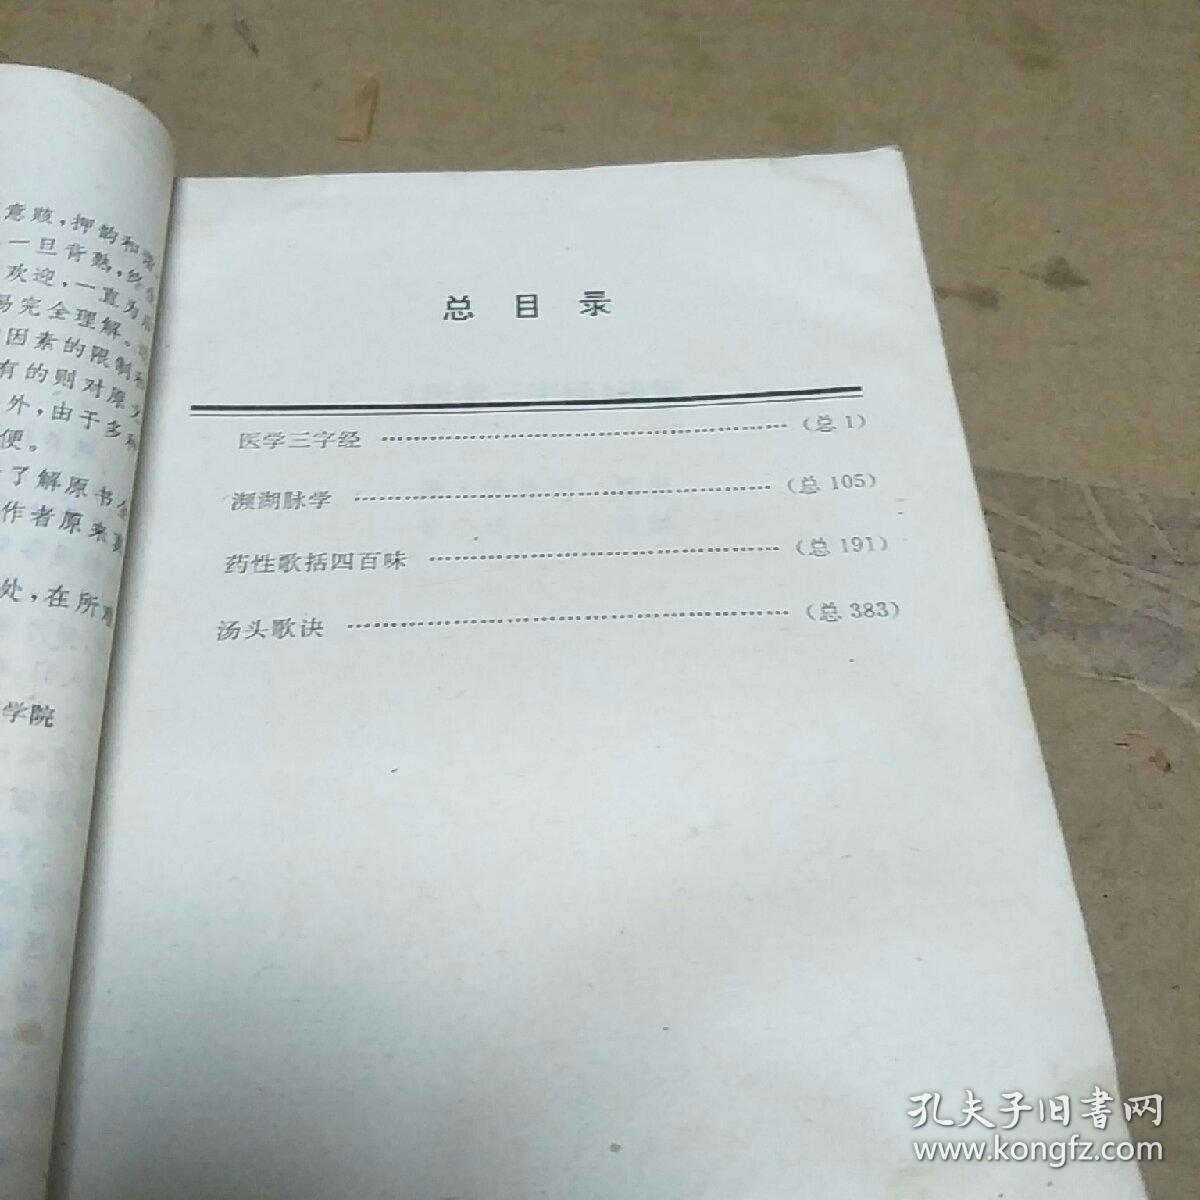 意赅，押韵和谐，
一旦背熟，终
欢迎，一直为
易完全理解。
因素的限制和
有的则对原文
外，由于多种
便。
了解原书全
作者原来
处，在所难
学院
总目录
医学三字经 (总1)
濒湖脉学 (总105)
药性歌括四百味 (总191)
汤头歌诀 (总383)
孔夫子旧书网
www.kongfz.com